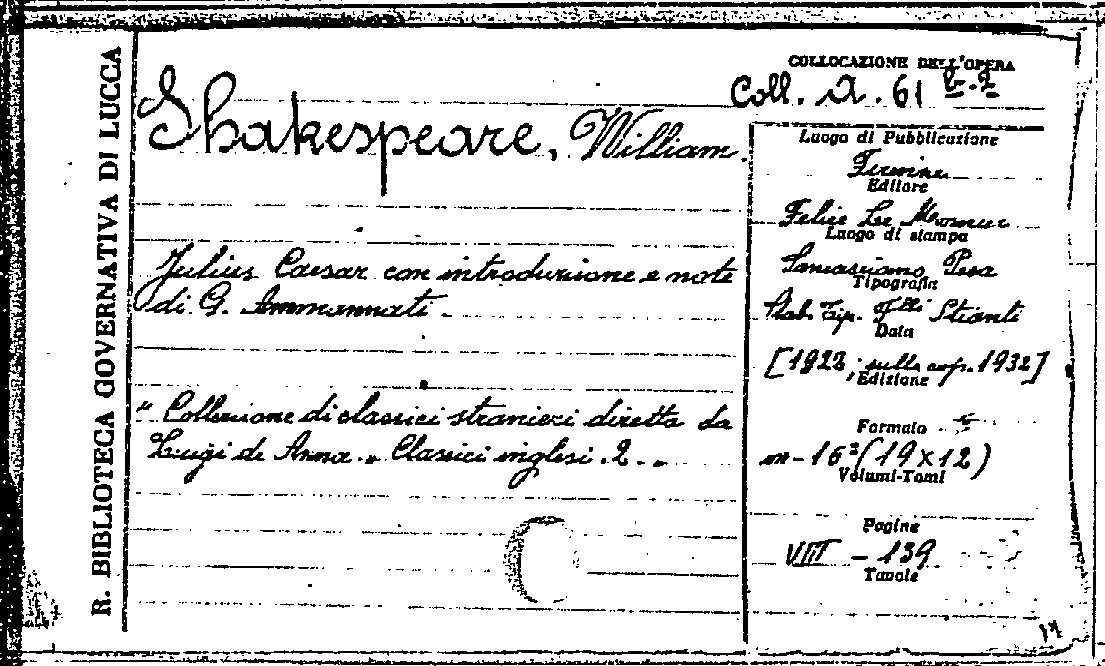 R. BIBLIOTECA GOVERNATIVA DI LUCCA
COLLOCAZIONE DELL'OPERA
Coll. A. 61
Shakespeare, William.
Luogo di Pubblicazione
Firenze
Editore
Felice Le Monnier
Luogo di stampa
Sancasciano Pesa
Tipografia
Stab. Tip. F.lli Stianti
Data
[1928; sulla cop. 1932]
Edizione
Julius Caesar con introduzione e note
di G. Ammannati.
"Collezione di classici stranieri diretta da
Luigi de Anna. Classici inglesi. 2."
Formato
in-16°(19x12)
Volumi-Tomi
Pagine
VIII - 139
Tavole